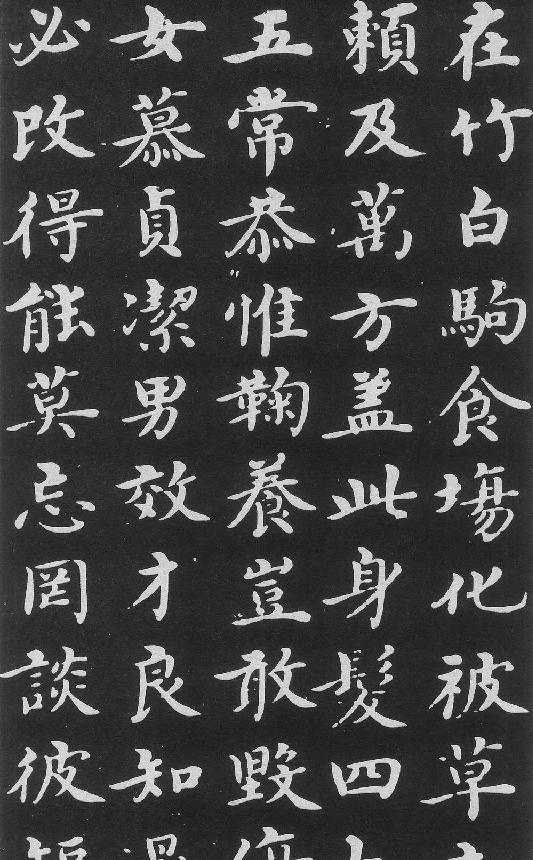 在竹白駒食場化被草
賴及萬方蓋此身髮四
五常恭惟鞠養豈敢毀
女慕貞潔男效才良知
必改得能莫忘罔談彼